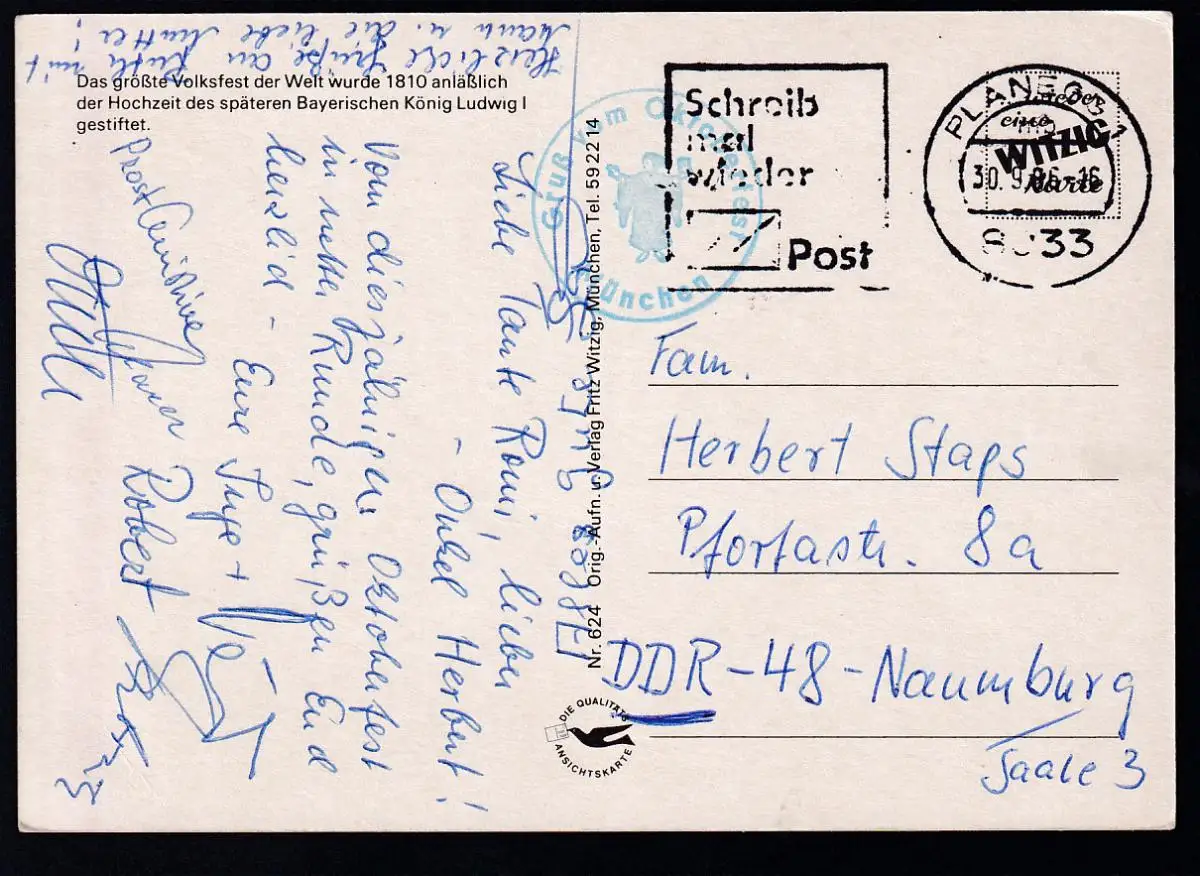 Herzliche Grüße an Ruth mit
Mann u. die liebe Mutter!
Das größte Volksfest der Welt wurde 1810 anläßlich
der Hochzeit des späteren Bayerischen König Ludwig I
gestiftet.
Liebe Tante Romi, lieber
- Onkel Herbert!
Vom diesjährigen Oktoberfest
in netter Runde, grüßen Euch
herzlich - Eure Inge +
Robert
Prost
Nr. 624 Orig.-Aufn. u. Verlag Fritz Witzig, München, Tel. 59 22 14
Gruß vom Oktoberfest
München
DIE QUALITÄTS
ANSICHTSKARTE
Schreib
mal
wieder
Post
PLANEGG 1
30.9.86-16
8033
wieder
eine
WITZIG
Karte
Fam.
Herbert Staps
Pfortastr. 8a
DDR-48-Naumburg
Saale 3